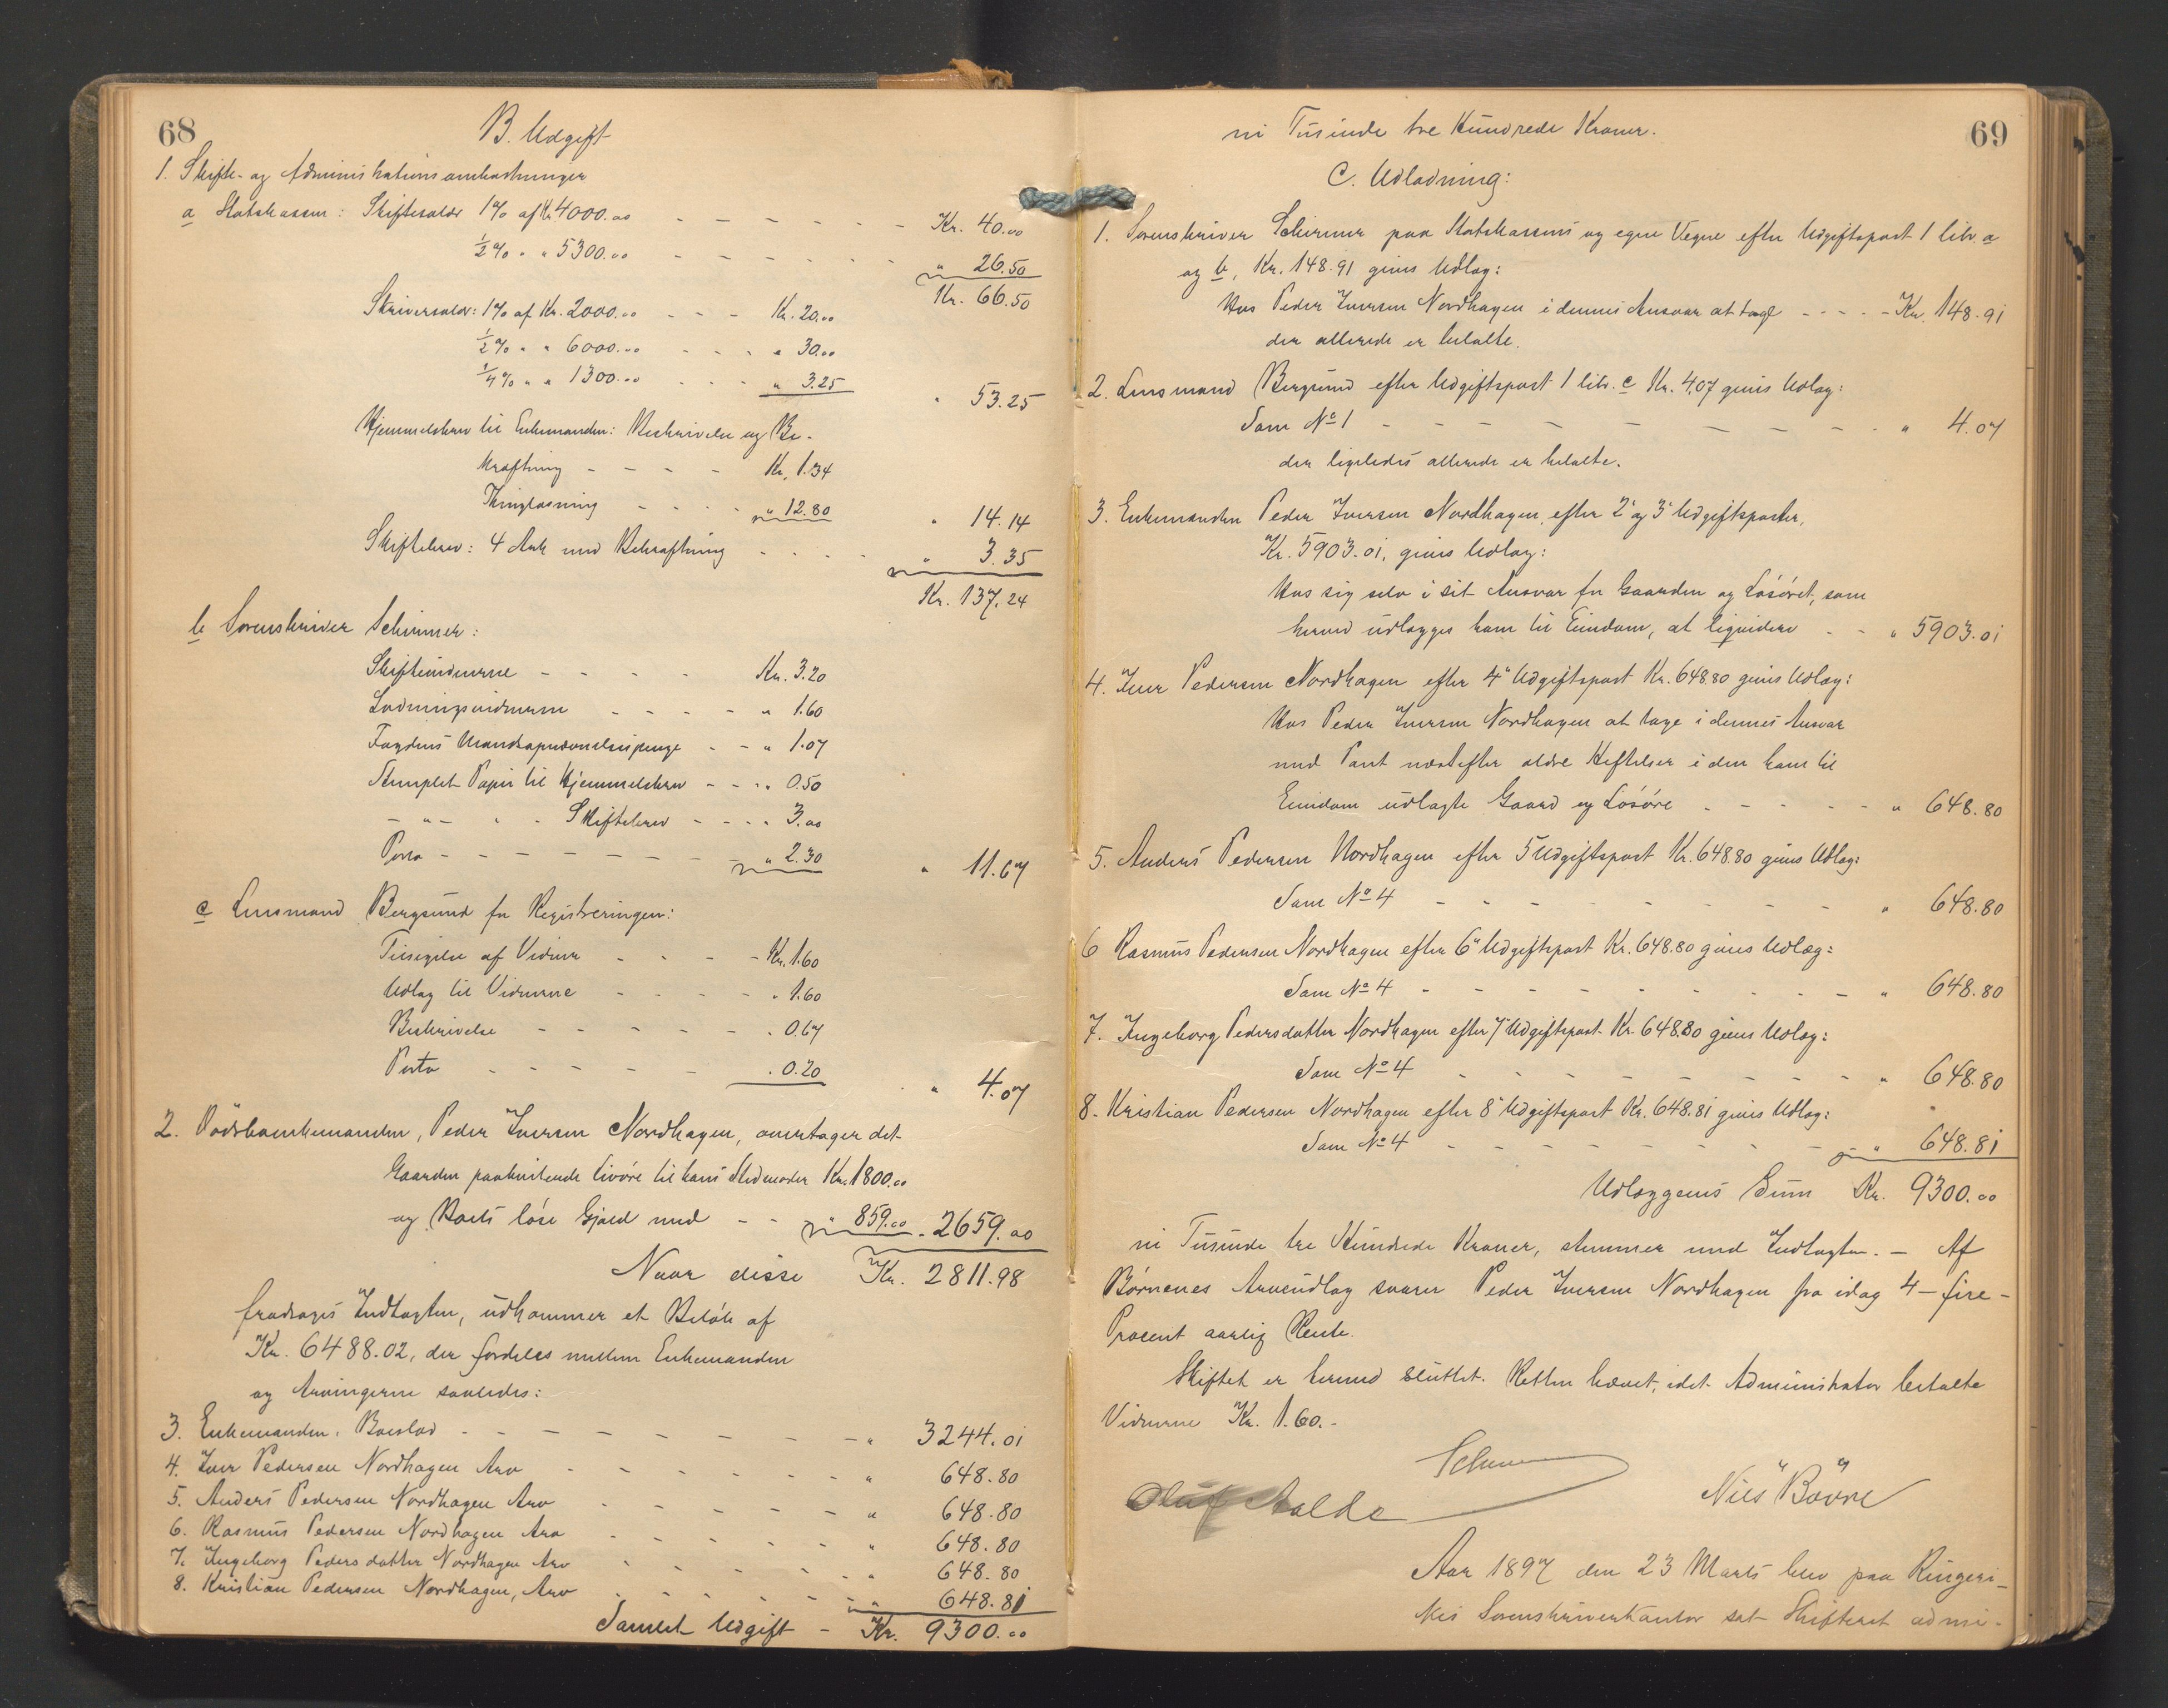 68
B. Udgift
1. Skifte- og Administrationsomkostninger
a Statskassen: Skiftesalær 1% af Kr 4000.00 - - - - - - Kr. 40.00
1/2% " " 5300.00 - - - - - - " 26.50
Kr. 66.50
Skriversalær: 1% af Kr. 2000.00 - - - Kr. 20.00
1/2% " " 6000.00 - - - " 30.00
1/4% " " 1300.00 - - - " 3.25
" 53.25
Hjemmelsbrev til Enkemanden: Beskrivelse og Be-
kræftning - - - - Kr. 1.34
Thinglæsning - - - - " 12.80
" 14.14
Skiftebrev: 4 Ark med Bekræftning - - - - " 3.35
Kr. 137.24
b Sorenskriver Schirmer:
Skiftevidnerne - - - - Kr. 3.20
Lodningsvidnerne - - - - " 1.60
Fogdens - - " 1.07
Stemplet Papir til Hjemmelsbrev - - - " 0.50
- " - " - Skiftebrev - - - - " 3.00
Porto - - - - - - - " 2.30
" 11.67
c Lensmand Bergsund for Registreringen:
Tilsigelse af Vidner - - - - Kr. 1.60
Udlæg til Vidnerne - - - - " 1.60
Beskrivelse - - - - - " 0.67
Porto - - - - - " 0.20
" 4.07
2. Dödsboenkemanden, Peder Iversen Nordhagen, overtager det
Gaarden paahvilende Livöre til hans Stedmoder Kr. 1800.00
og Boets löse Gjæld med - - " 859.00 " 2659.00
Naar disse Kr. 2811.98
fradrages Indtægten, udkommer et Belöb af
Kr. 6488.02, der fordeles mellem Enkemanden
og Arvingerne saaledes:
3. Enkemanden, Boeslod - - - - - - - - " 3244.01
4. Iver Pedersen Nordhagen Arv - - - - - - " 648.80
5. Anders Pedersen Nordhagen Arv - - - - - " 648.80
6. Rasmus Pedersen Nordhagen Arv - - - - - " 648.80
7. Ingeborg Pedersdatter Nordhagen Arv - - - - " 648.80
8. Kristian Pedersen Nordhagen, Arv - - - - - " 648.81
Samlet Udgift - Kr. 9300.00
69
ni Tusinde tre Hundrede Kroner.
C. Udlodning:
1. Sorenskriver Schirmer paa Statskassens og egne Vegne efter Udgiftspost 1 litr. a
og b, Kr. 148.91 gives Udlæg:
Hos Peder Iversen Nordhagen i dennes Ansvar at tage - - - - - Kr. 148.91
der allerede er betalte.
2. Lensmand Bergsund efter Udgiftspost 1 litr. c Kr. 4.07 gives Udlæg:
Som No 1 - - - - - - - - - " 4.07
der ligeledes allerede er betalte.
3. Enkemanden Peder Iversen Nordhagen, efter 2' og 3' Udgiftsposter,
Kr. 5903.01, gives Udlæg:
Hos sig selv i sit Ansvar for Gaarden og Lösöret, som
herved udlægges ham til Eiendom, at liquidere - - " 5903.01
4. Iver Pedersen Nordhagen efter 4' Udgiftspost Kr. 648.80 gives Udlæg:
Hos Peder Iversen Nordhagen at tage i dennes Ansvar
med Pant næstefter ældre Heftelser i den ham til
Eiendom udlagte Gaard og Lösöre - - - - - " 648.80
5. Anders Pedersen Nordhagen efter 5 Udgiftspost Kr. 648.80 gives Udlæg:
Som No 4 - - - - - - - - " 648.80
6 Rasmus Pedersen Nordhagen efter 6' Udgiftspost Kr. 648.80 gives Udlæg:
Som No 4 - - - - - - - - - " 648.80
7. Ingeborg Pedersdatter Nordhagen efter 7' Udgiftspost Kr. 648.80 gives Udlæg:
Som No 4 - - - - - - - - " 648.80
8. Kristian Pedersen Nordhagen efter 8' Udgiftspost Kr. 648.81 gives Udlæg:
Som No 4 - - - - - - - - " 648.81
Udlæggenes Sum Kr. 9300.00
ni Tusinde tre Hundrede Kroner, stemmer med Indtægten. - Af
Börnenes Arveudlæg svarer Peder Iversen Nordhagen fra idag 4 - fire -
Procent aarlig Rente.
Skiftet er hermed sluttet. Retten hævet, idet Administrator betalte
Vidnerne Kr. 1.60. -
Schirmer
Oluf Aalde Nils Bövre
Aar 1897 den 23 Marts blev paa Ringeri-
kes Sorenskriverkontor sat Skifteret admi-